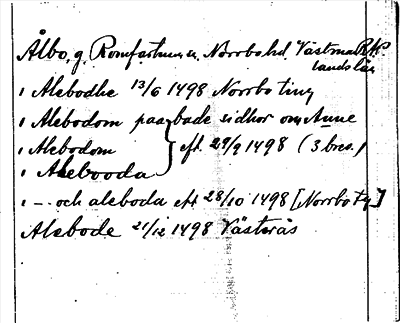 Ålbo, g. Romfartuna sn. Norrbo hd. Västman-
lands län
i Alebodhe 13/6 1498 Norrbo ting
i Alebodom paa bade sidhor om Anne
i Alebodom } eft. 29/9 1498 (3 brev.)
i Alebooda
i - och aleboda eft 28/10 1498 [Norrbo tg]
Alebode 21/12 1498 Västerås